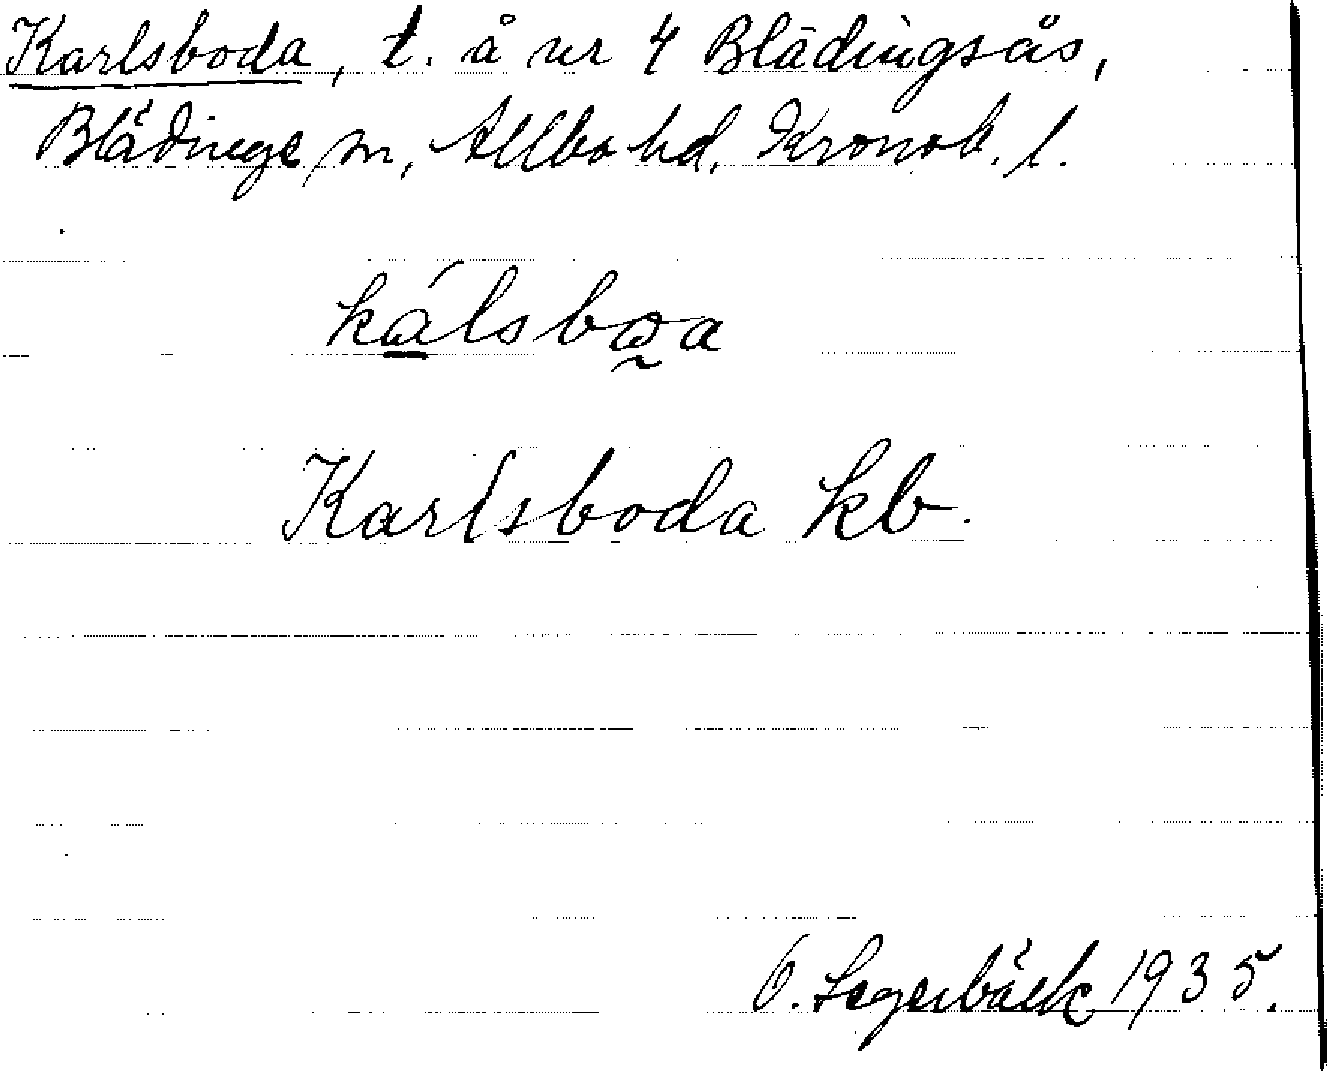 Karlsboda, t. å nr 4 Blädingsås,
Blädinge sn, Allbo hd, Kronob. l.
kálsbꝏa
Karlsboda kb.
O. Segerbäck 1935.